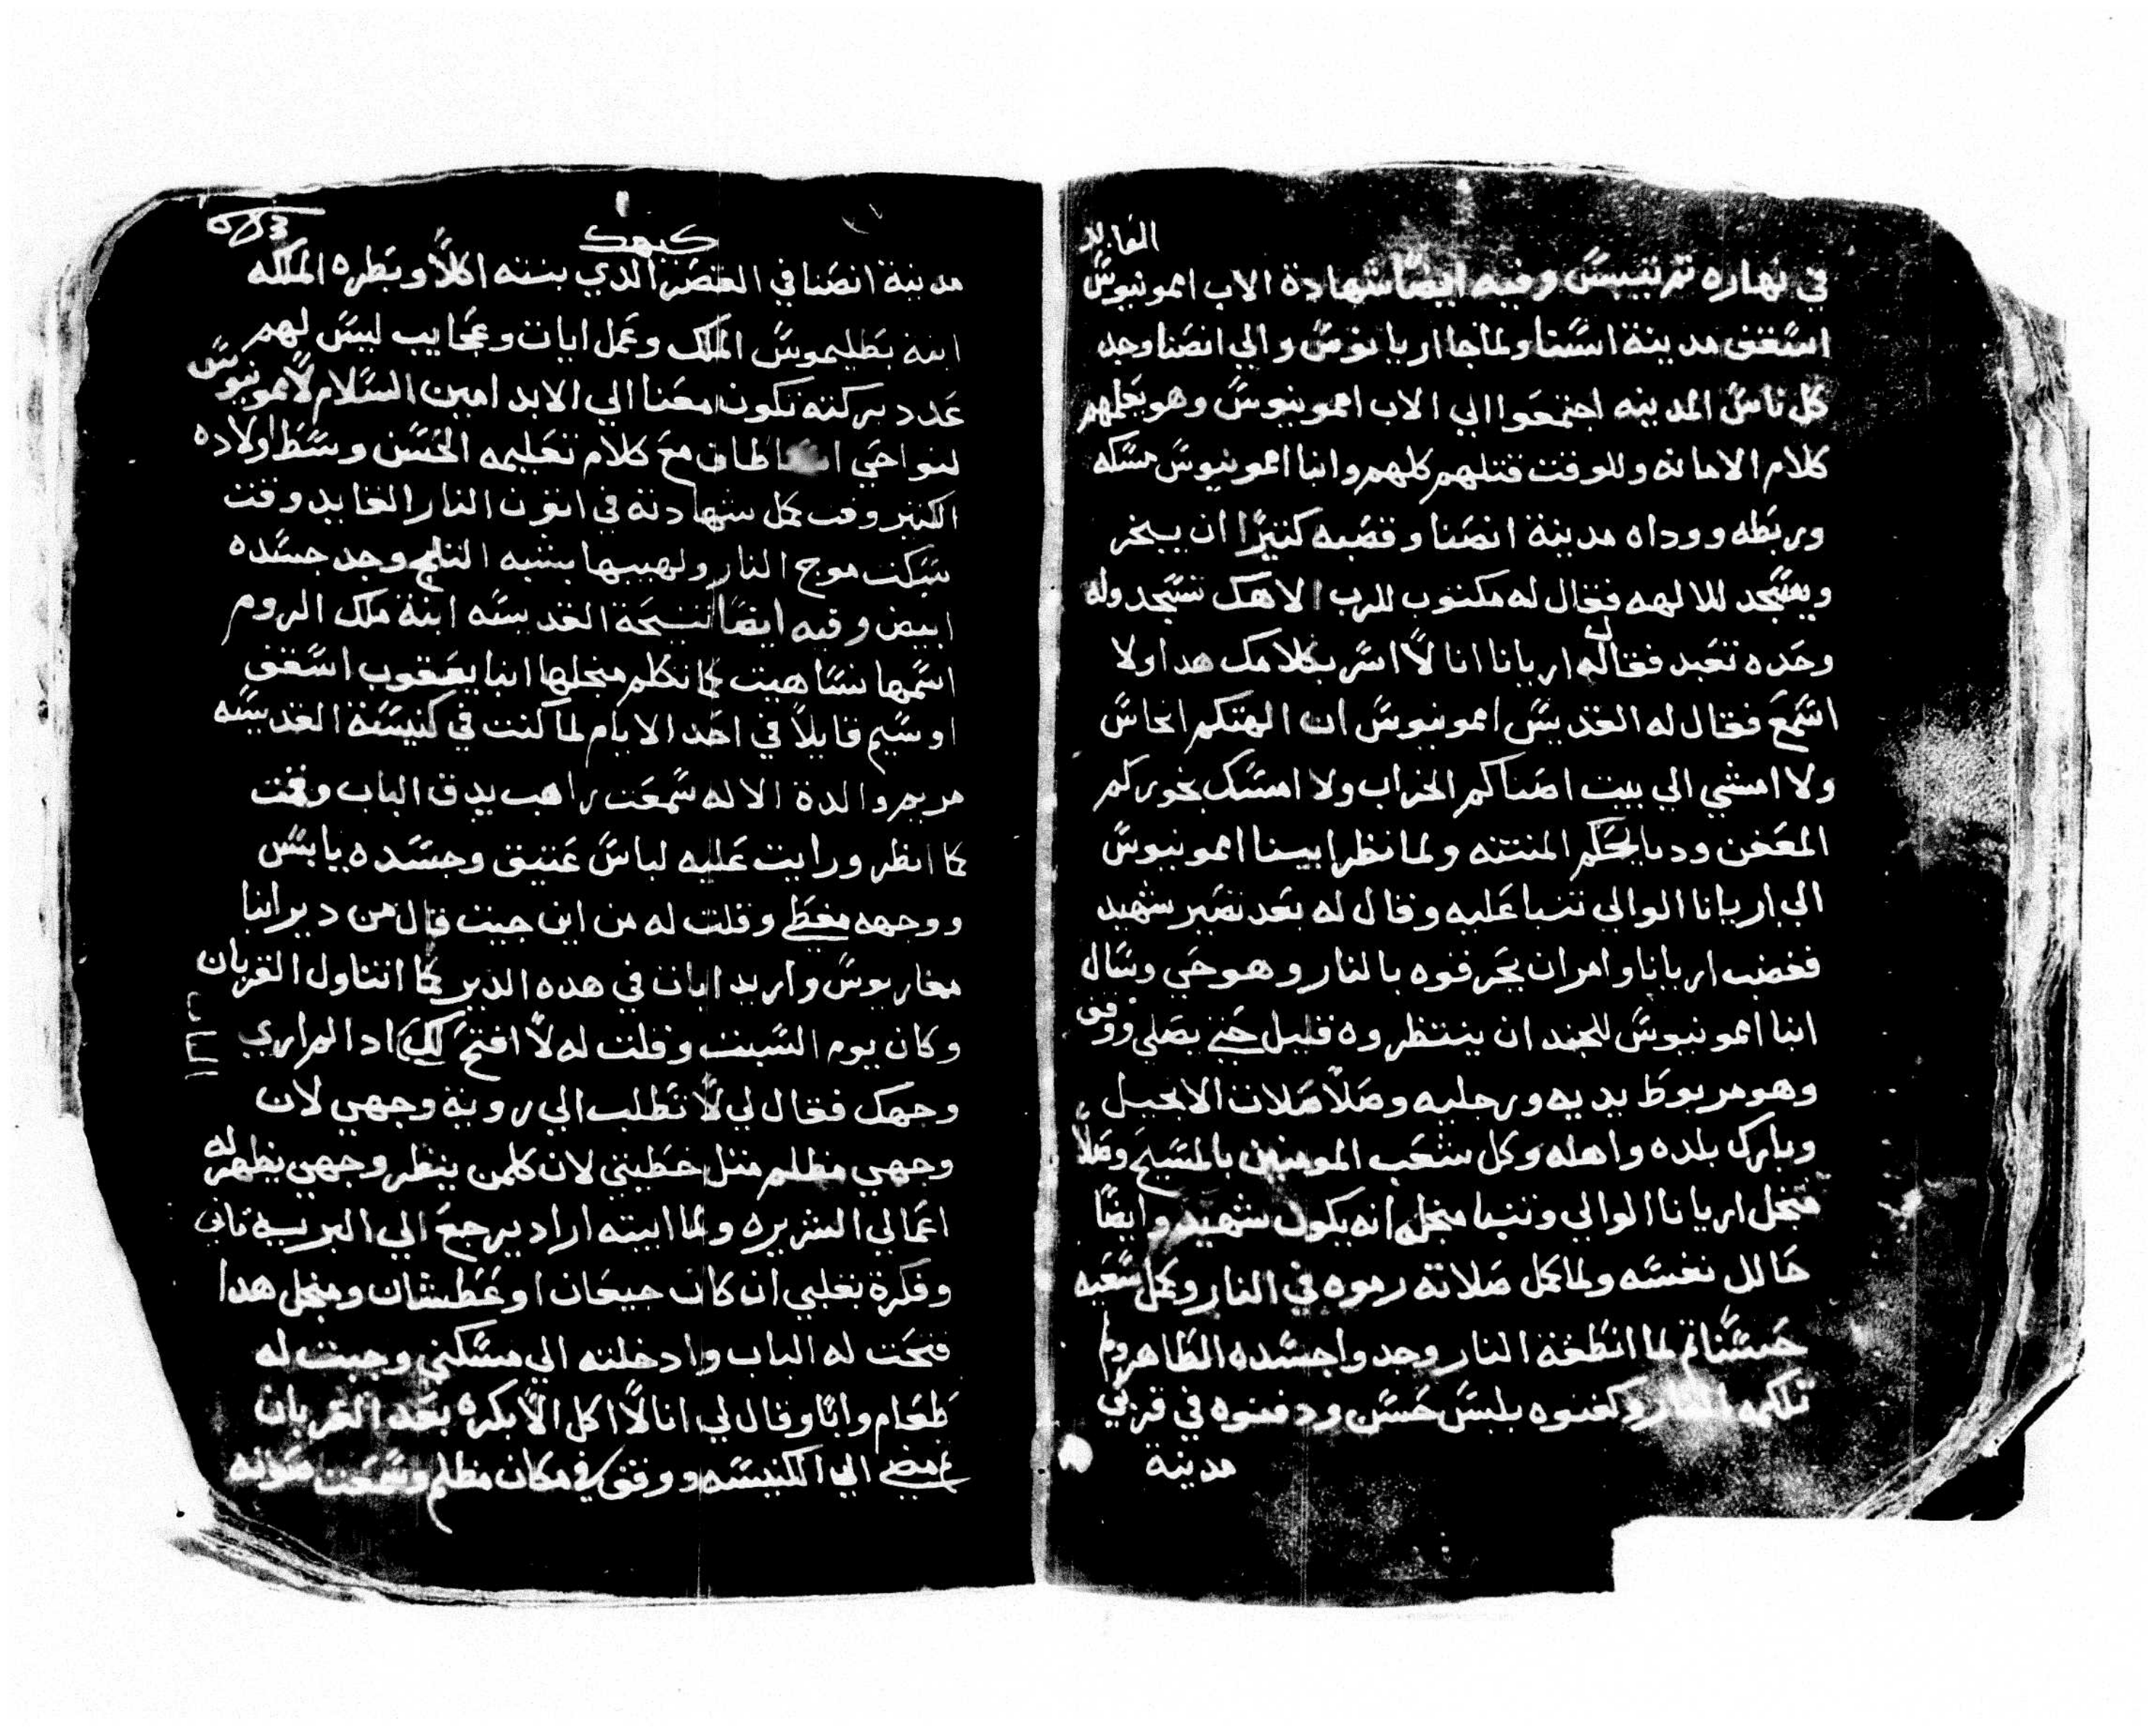 في نهاره تدرتيبس وفيه ايضًا شهادة الاب امونيوس
اسقف مدينة اسنا ولما جا اريانوس والي انصنا وجد
كل ناس المدينه اجتمعوا الي الاب امونيوس وهو يعلمهم
كلام الامانه وللوقت قتلهم كلهم وانبا امونيوس مسكه
وربطه ووداه مدينة انصنا وقصبه كتيرًا ان يبخر
ويسجد للالهه فقال له مكتوب للرب الاهك تسجد وله
وحده تعبد فقال له اريانا انا لا اسر بكلامك هدا ولا
اسمع فقال له القديس امونيوس ان الهتكم انجاس
ولا امشي الي بيت اصناكم الخراب ولا امسك بخوركم
المعفن ودبايحكم المنتنه ولما نظر ابينا امونيوس
الي اريانا الوالي تنبا عليه وقال له بعد تصير شهيد
فغضب اريانا وامر ان يحرقوه بالنار وهو حي وسال
انبا امونيوس للجند ان ينتظروه قليل حتي يصلي ووقف
وهو مربوط يديه ورجليه وصلا صلات الانجيل
وبارك بلده واهله وكل شعب المومنين بالمسيح وصلا
منجل اريانا الوالي وتنبا منجله انه يكون شهيد وايضًا
حالل نفسه ولما كمل صلاته رموه في النار وكمل سعيه
حسنًا تم لما انطفة النار وجدوا جسده الطاهر ولم
تلكمه النار وكفنوه بلبس حسن ودفنوه في قربي
مدينة
كيهك
مدينة انصنا في القصر الدي بنته اكلاوبطره الملكه
ابنة بطليموس الملك وعمل ايات وعجايب ليس لهم
عدد بركته تكون معنا الي الابد امين السلام لامونيوس
لنواحي طاف مع كلام تعليمه الحسن وسط اولاده
الكتير وقت كمل شهادته في اتون النار القايد وقت
سكت موج النار ولهيبها بشبه التلج وجد جسده
ابيض وفيه ايضًا نتيحة القديسه ابنة ملك الروم
اسمها نساهيت كما تكلم منجلها انبا يعقوب اسقف
اوسيم قايلا في احد الايام لما كنت في كنيسة القديسه
مريم والدة الاله سمعت راهب يدق الباب وقمت
كما انظر ورايت عليه لباس عتيق وجسده يابس
ووجهه مغطي وقلت له من اين جيت قال من دير انبا
مقاريوس واريد ابات في هده الدير كما اتناول القربان
وكان يوم السبت وقلت له لا افتح لك ادا لم اري
الباب
وجهك فقال لي لا تطلب الي روية وجهي لان
وجهي مظلم متل خطيتي لان كلمن ينظر وجهي يظهر له
اعمالي الشريره ولما ابيته اراد يرجع الي البريه تاني
وفكرة بقلبي ان كان جيعان او عطشان ومنجل هدا
فتحت له الباب وادخلته الي مسكني وجبت له
طعام وانا وقال لي انا لا اكل الا بكره بعد القربان
ومضي الي الكنيسه ووقف في مكان مظلم وسمعت صوته